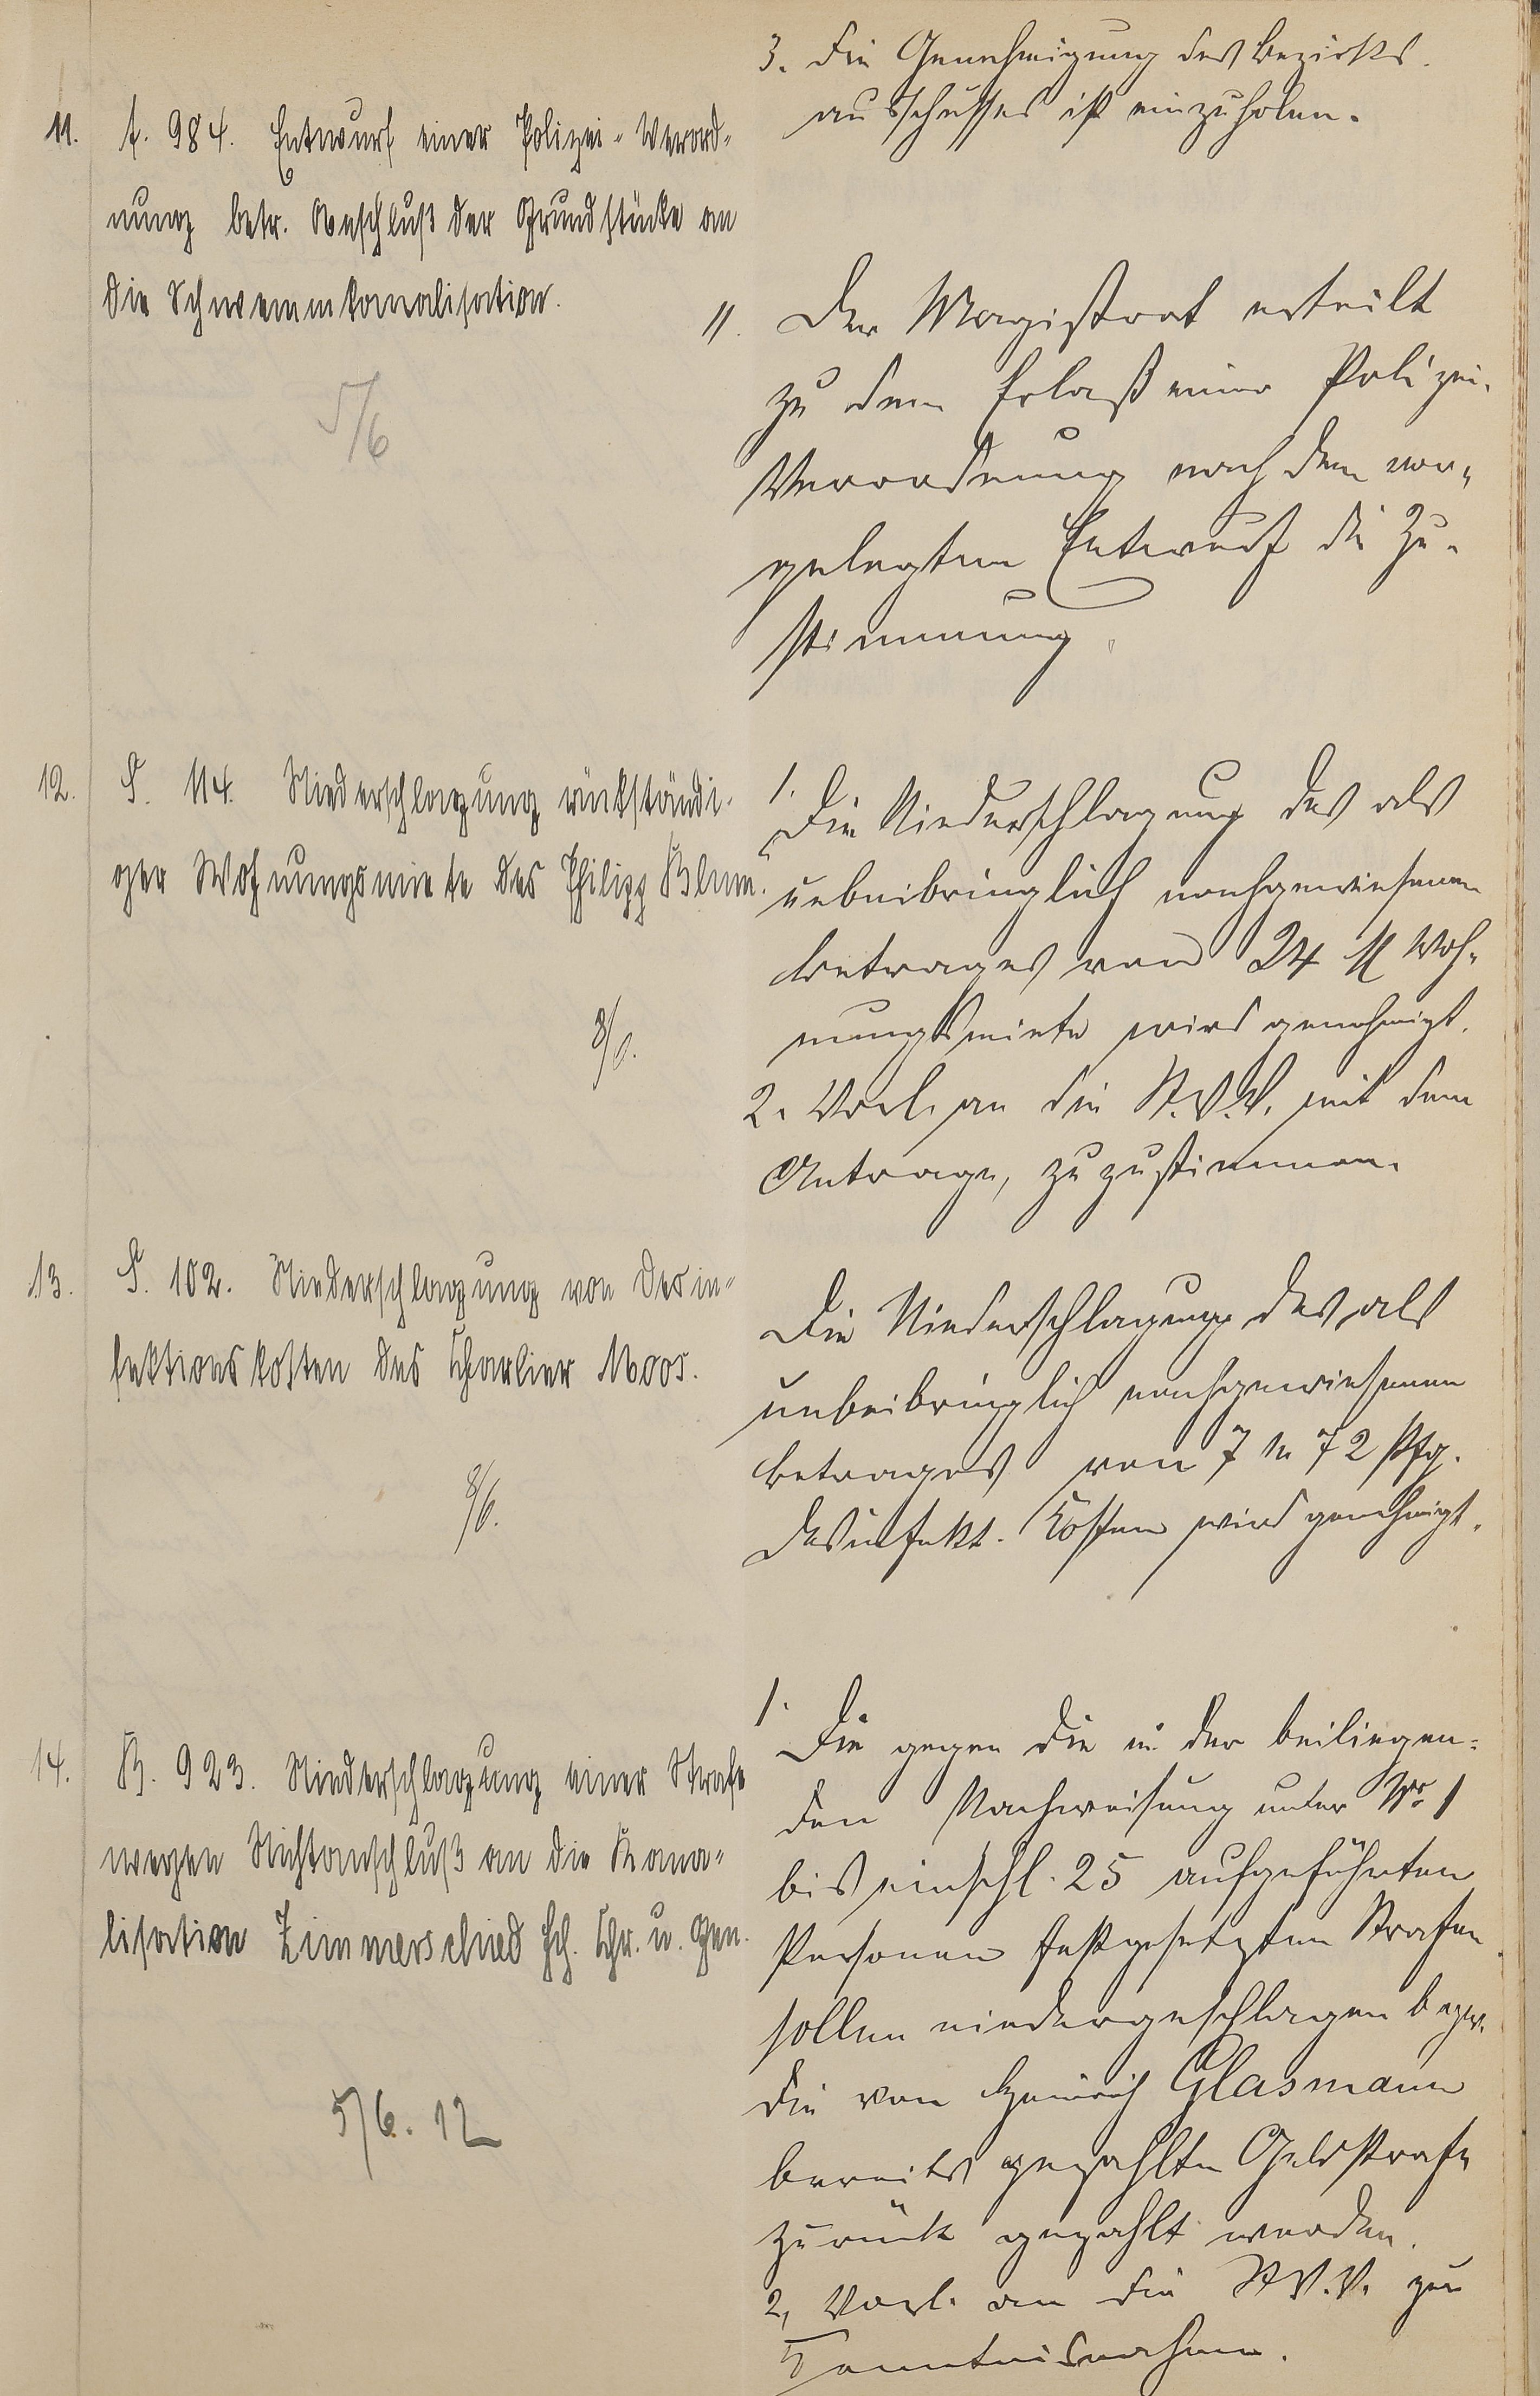 3. Die Genehmigung des Bezirks-
ausschusses ist einzuholen.
11. t. 984. Entwurf einer Polizei-Verord-
nung betr. Anschluß der Grundstücke an
die Schwemmkanalisation.
5/6
11. Der Magistrat erteilt
zu dem Erlaß einer Polizei-
Verordnung nach dem vor-
gelegten Entwurf die Zu-
stimmung.
12. S. 114. Niederschlagung rückständi-
ger Wohnungsmiete des Philipp Blum.
8/6.
1. Die Niederschlagung des als
unbeibringlich nachgewiesenen
Betrages von 24 M Woh-
nungsmiete wird genehmigt.
2. Vorl. an die St.V.V. mit dem
Antrage, zuzustimmen.
13. S. 102. Niederschlagung von Desin-
fektionskosten des Charlier Moos.
8/6.
Die Niederschlagung des als
unbeibringlich nachgewiesenen
Betrages von 7 M 72 Pfg.
Desinfekt. Kosten wird genehmigt.
14. B. 923. Niederschlagung einer Strafe
wegen Nichtanschluß an die Kana-
lisation Zimmerschied Hch. Chr. u. Gen.
5/6. 12
1. Die gegen die in der beiliegen-
den Nachweisung unter No 1
bis einschl. 25 aufgeführten
Personen festgesetzten Strafen
sollen niedergeschlagen bezw.
die von Heinrich Glasmann
bereits gezahlte Geldstrafe
zurück gezahlt werden.
2, Vorl. an die St.V.V. zur
Kenntnisnahme.